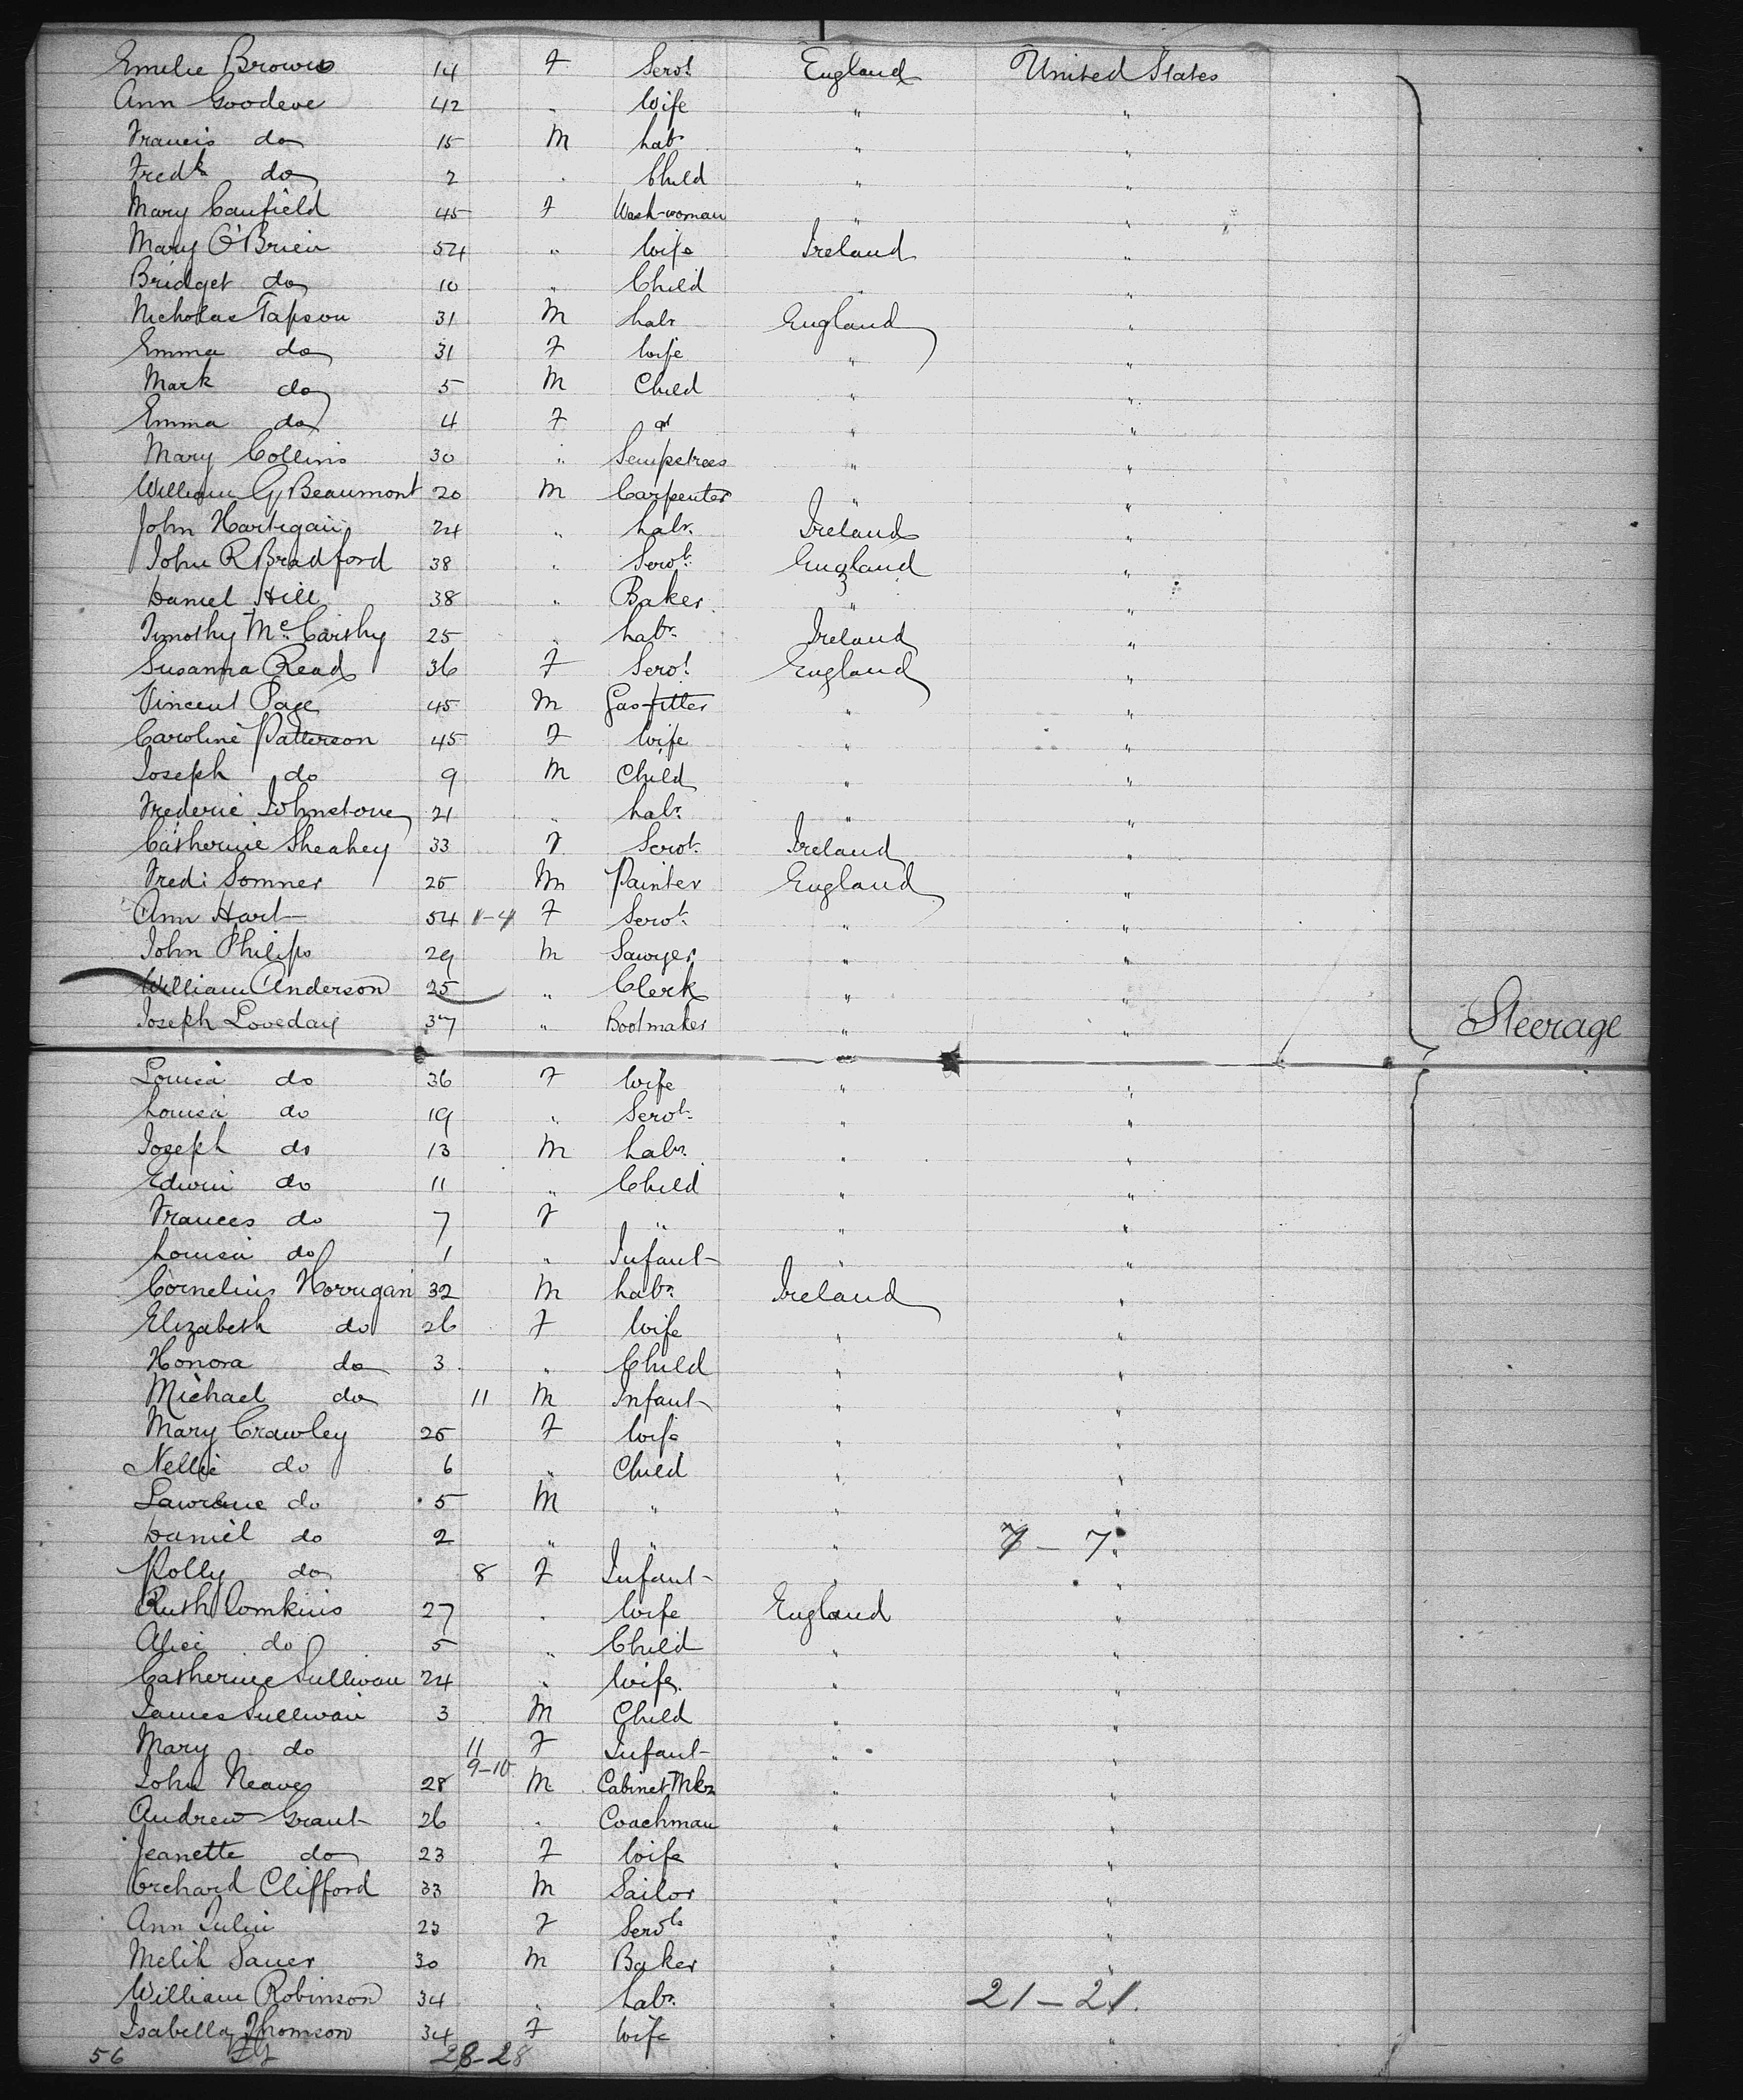 Emelie Brown 14 F Servt England United States
Ann Goodeve 42 " Wife " "
Francis do 15 M Labr " "
Fredk do 2 " Child " "
Mary Caufield 45 F Wash-woman " "
Mary O'Brien 54 " Wife Ireland "
Bridget do 10 " Child " "
Nicholas Tapson 31 M Labr England "
Emma do 31 F Wife " "
Mark do 5 M Child " "
Emma do 4 F " "
Mary Collins 30 " Sempstress " "
William G Beaumont 20 M Carpenter " "
John Hartigan 24 " Labr. Ireland "
John R Bradford 38 " Servt. England "
Daniel Hill 38 " Baker " "
Timothy Mc Carthy 25 " Labr. Ireland "
Susanna Read 36 F Servt England "
Vincent Page 45 M Gas-fitter " "
Caroline Patterson 45 F Wife " "
Joseph do 9 M Child " "
Frederic Johnstone 21 " Labr. " "
Catherine Sheahey 33 F Servt. Ireland "
Fredk Somner 25 M Painter England "
Ann Hart 54 1-4 F Servt. " "
John Philips 29 M Sawyer " "
William Anderson 25 " Clerk " "
Joseph Loveday 37 " Bootmaker " " Steerage
Louisa do 36 F Wife " "
Louisa do 19 " Servt. " "
Joseph do 13 M Labr. " "
Edwin do 11 " Child " "
Frances do 7 F " " "
Louisa do 1 " Infant " "
Cornelius Horrigan 32 M Labr. Ireland "
Elizabeth do 26 F Wife " "
Honora do 3 " Child " "
Michael do 11 M Infant " "
Mary Crawley 25 F Wife " "
Nellie do 6 " Child " "
Lawrence do 5 M " " "
Daniel do 2 " " " 7 - 7 "
Polly do 8 F Infant " "
Ruth Tomkins 27 " Wife England "
Alice do 5 " Child " "
Catherine Sullivan 24 " Wife " "
James Sullivan 3 M Child " "
Mary do 11 F Infant " "
9-10
John Neaves 28 M Cabinet Mkr " "
Andrew Grant 26 " Coachman " "
Jeanette do 23 F Wife " "
Orchard Clifford 33 M Sailor " "
Ann Julin 23 F Servt " "
Melih Sauer 30 M Baker " "
William Robinson 34 " Labr. " 21 - 21.
Isabella Thomson 34 F Wife " "
56 28-28